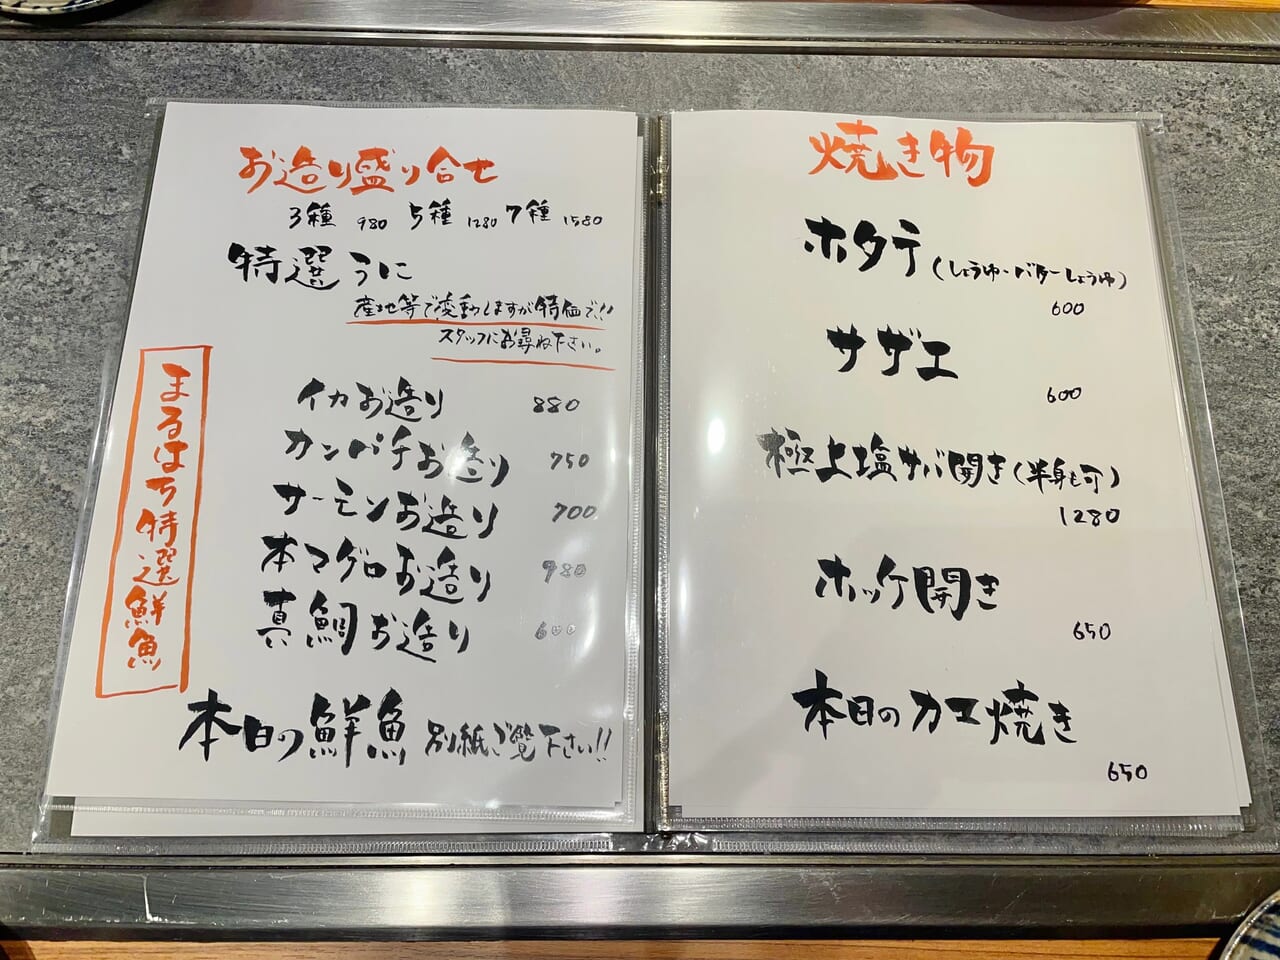 お造り盛り合せ
3種 980 5種 1280 7種 1580
特選うに
産地等で変動しますが特価で!!
スタッフにお尋ね下さい。
まるはち特選鮮魚
イカお造り 880
カンパチお造り 750
サーモンお造り 700
本マグロお造り 980
真鯛お造り 600
本日の鮮魚 別紙ご覧下さい!!
焼き物
ホタテ(しょうゆ・バターしょうゆ)
600
サザエ
600
極上塩サバ開き(半身も可)
1280
ホッケ開き
650
本日のカマ焼き
650